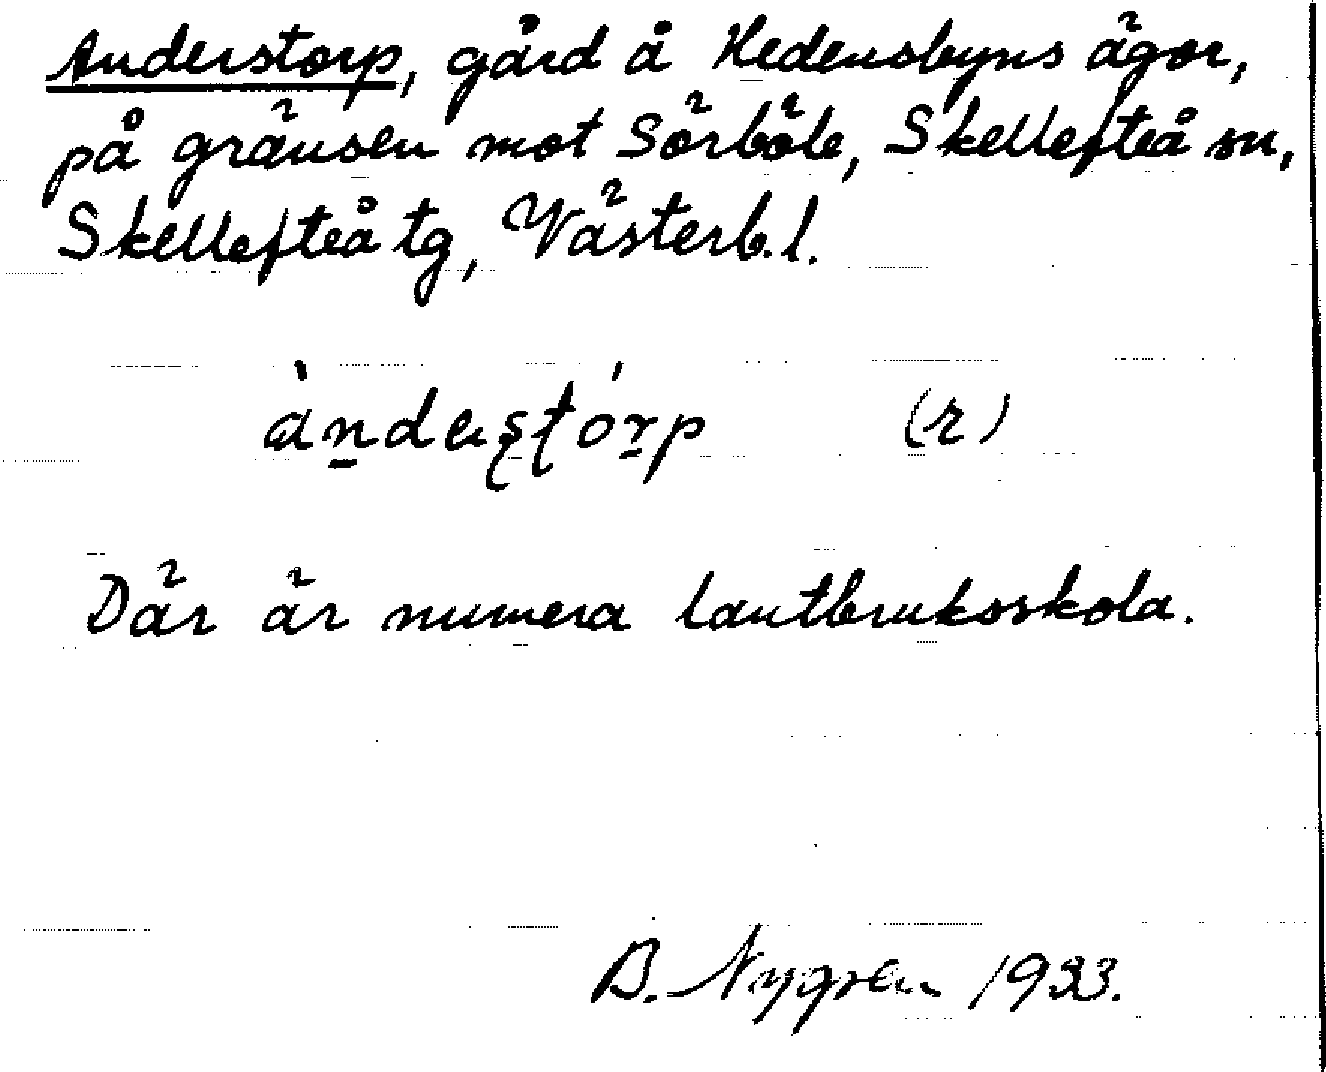 Anderstorp, gård å Hedensbyns ägor,
på gränsen mot Sörböle, Skellefteå sn,
Skellefteå tg, Västerb.l.
àn̠deʂƫór̠p (r)
Där är numera lantbruksskola.
B. Nygren 1933.